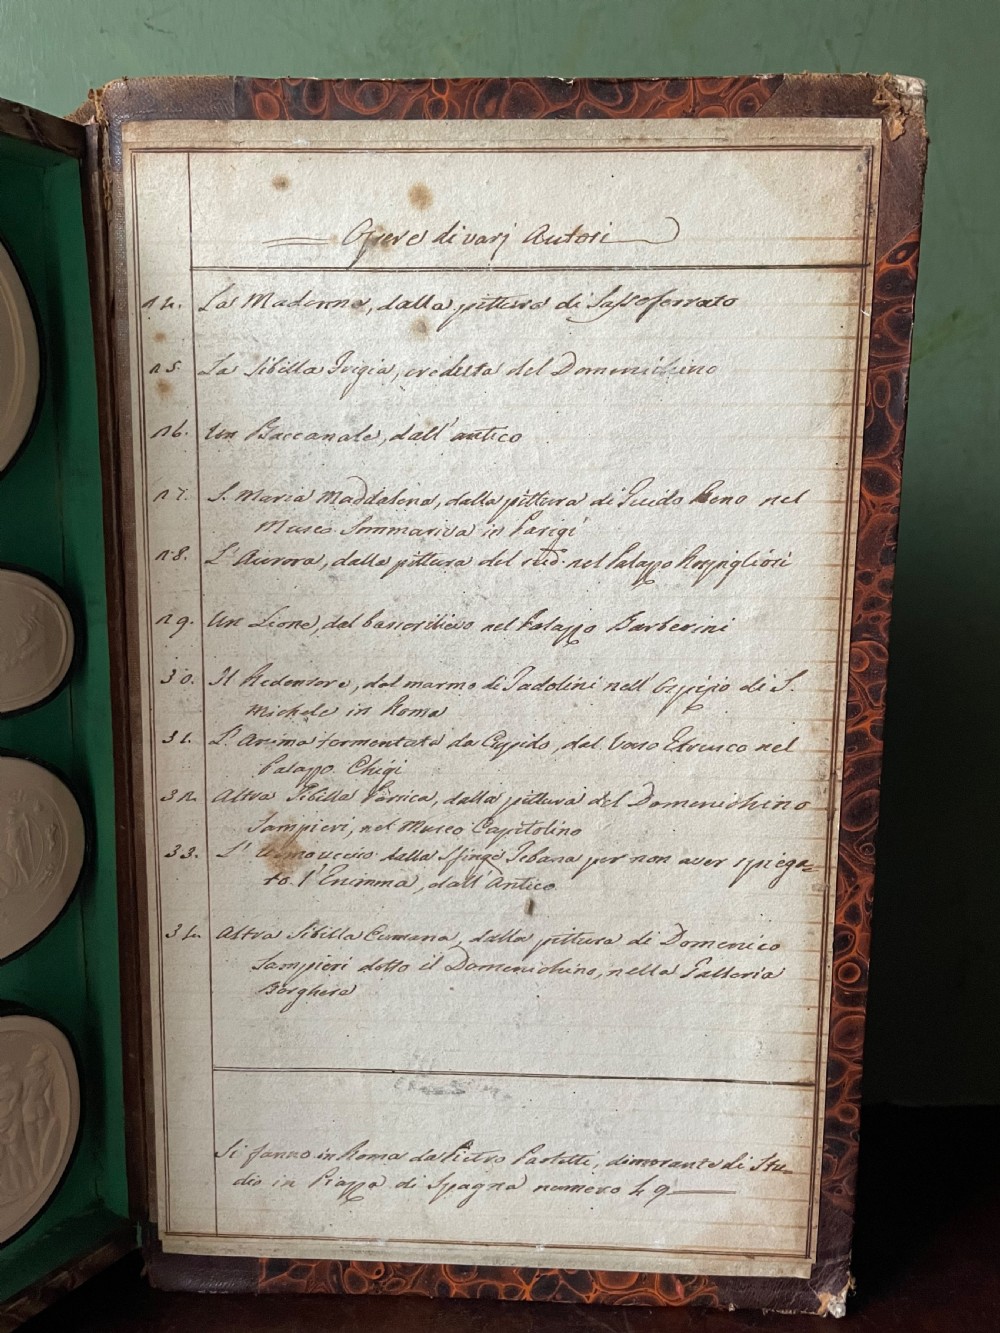 Opere di varj Autori
24. La Madonna, dalla pittura di Sassoferrato
25. La Sibilla Frigia, creduta del Domenichino
26. Un Baccanale, dall'antico
27. S. Maria Maddalena, dalla pittura di Guido Reno nel
Museo Sommariva in Parigi
28. L'Aurora, dalla pittura del sud.º nel Palazzo Rospigliosi
29. Un Lione, dal bassorilievo nel Palazzo Barberini
30. Il Redentore, dal marmo di Tadolini nell'Ospizio di S.
Michele in Roma
31. L'Anima tormentata da Cupido, dal Vaso Etrusco nel
Palazzo Chigi
32. Altra Sibilla Persica, dalla pittura del Domenichino
Sampieri, nel Museo Capitolino
33. L' ucciso dalla Sfinge Tebana per non aver spiega=
to l'Enimma, dall'Antico
34. Altra Sibilla Cumana, dalla pittura di Domenico
Sampieri detto il Domenichino, nella Galleria
Borghese
Si fanno in Roma da Pietro Paoletti, dimorante di Stu=
dio in Piazza di Spagna numero 49